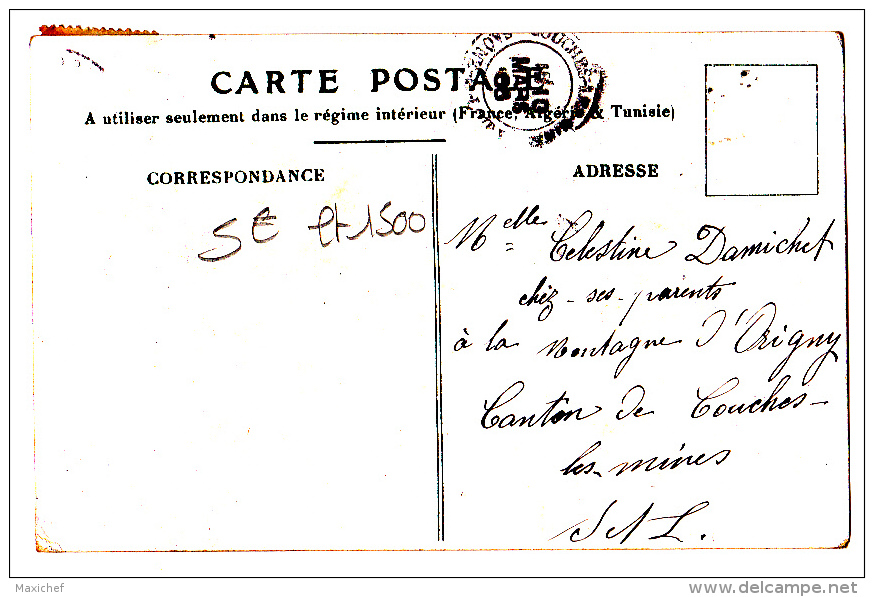 CARTE POSTALE
A utiliser seulement dans le régime intérieur (France, Algérie & Tunisie)
CORRESPONDANCE
ADRESSE
MARS
08
5€ lt 1500
Melle Celestine Damichel
chez - ses - parents
à la Montagne d'Origny
Canton de Couches-
les-mines
S A L.
Maxichef
delcampe.net